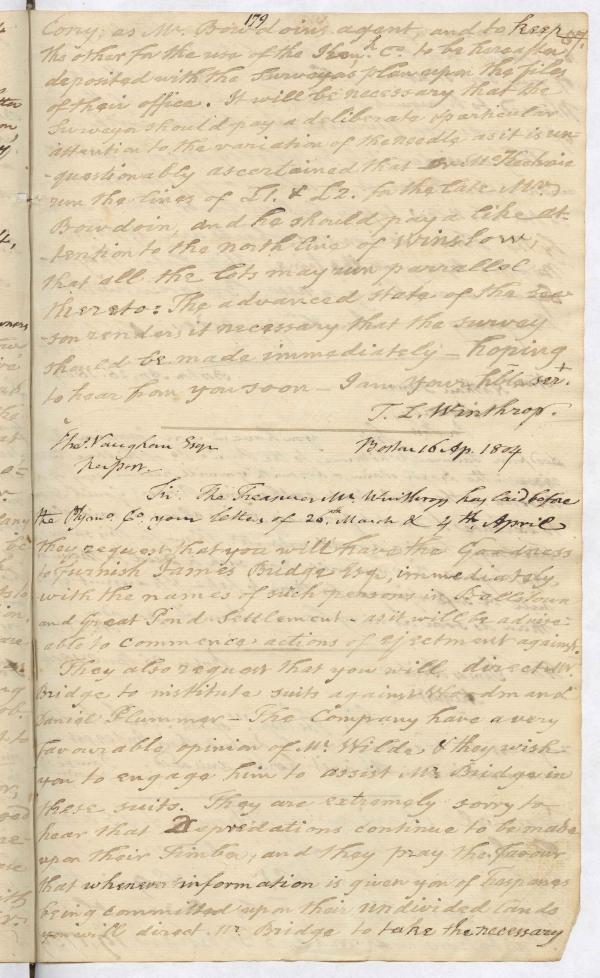 179
Cony, as Mr. Bowdoin's agent, and to keep
the other for the use of the Ken. Co. to be hereafter
deposited with the Surveyors plan upon the files
of their office. It will be necessary that the
Surveyor should pay a deliberate & particular
attention to the variation of the needle as it is un-
-questionably ascertained that Mr McKechnie
run the lines of L1. & L2. for the late Mr
Bowdoin, and he should pay a like at-
-tention to the north line of Winslow,
that all the lots may run parrallel
thereto: The advanced state of the sea
-son renders it necessary that the survey
should be made immediately – hoping
to hear from you soon – I am Your hble sert.
T. L. Winthrop.
Thos. Vaughan Esqr Boston 16 Ap. 1804
Sir. The Treasurer Mr Winthrop has laid before
the Plymo. Co. your letters of 26th March & 4th April
they request that you will have the Goodness
to furnish James Bridge Esqr, immediately,
with the names of such persons in Balls Town
and Great Pond Settlement – as it will be advise-
able to commence actions of ejectment against.
They also request that you will direct Mr
Bridge to institute suits against and
Daniel Plummer – The Company have a very
favourable opinion of Mr. Wilde, & they wish
you to engage him to assist Mr Bridge in
these suits. They are extremely sorry to
hear that Depredations continue to be made
upon their Timber, and they pray the favour
that whenever information is given you of Trespasses
being committed upon their undivided lands
you will direct Mr. Bridge to take the necessary